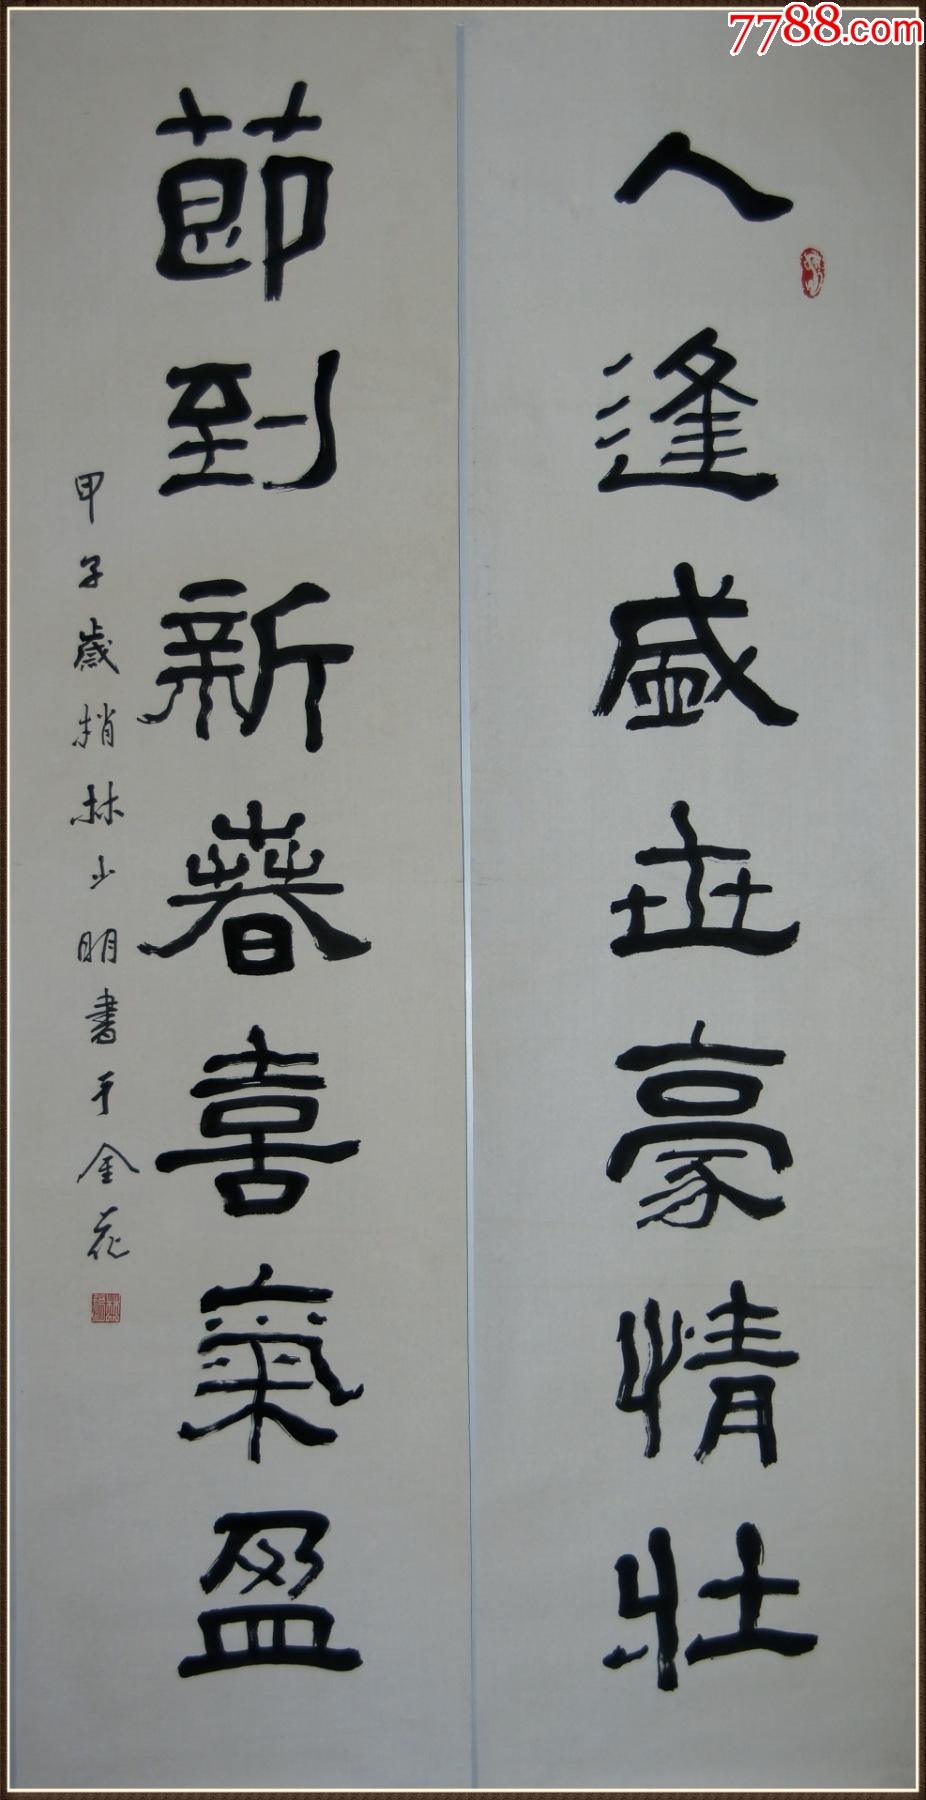 7788.com
人逢盛世豪情壮
節到新春喜氣盈
甲子歲梢林少明書于金花